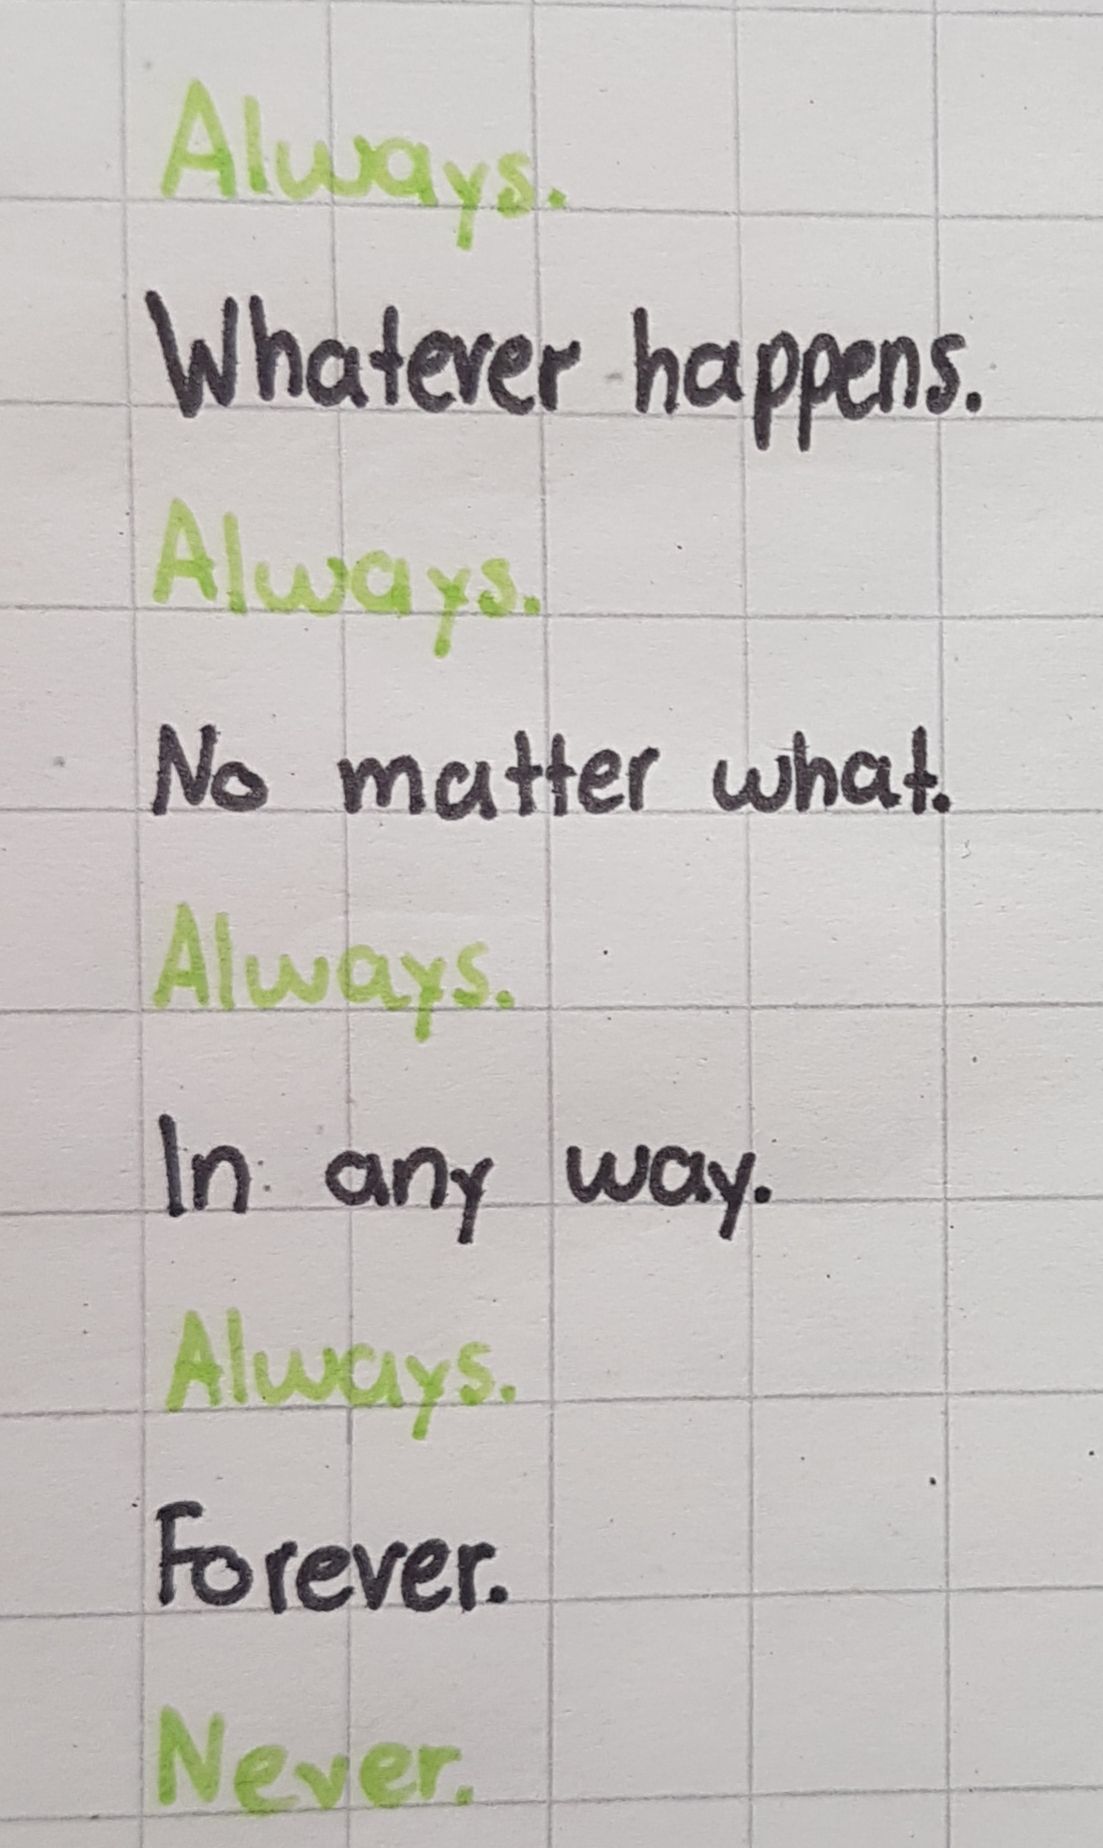 Always.
Whatever happens.
Always.
No matter what.
Always.
In any way.
Always.
Forever.
Never.